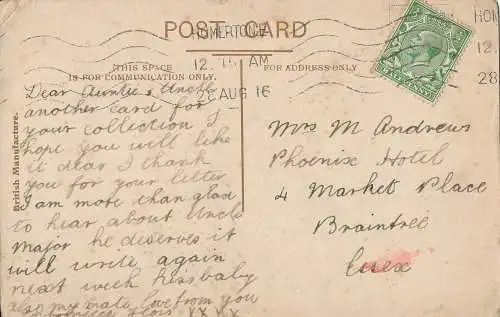 POST CARD
HOMERTON
12.15 AM
28 AUG 16
HON
12.
28
HALFPENNY
THIS SPACE
IS FOR COMMUNICATION ONLY.
FOR ADDRESS ONLY
British Manufacture.
Dear Auntie & Uncle
another card for
your collection I
hope you will like
it dear I thank
you for your letter
I am more than glad
to hear about Uncle
Major he deserves it
will write again
next week kiss baby
also my mate love from you
XXXX
Mrs M Andrews
Phoenix Hotel
4 Market Place
Braintree
Essex